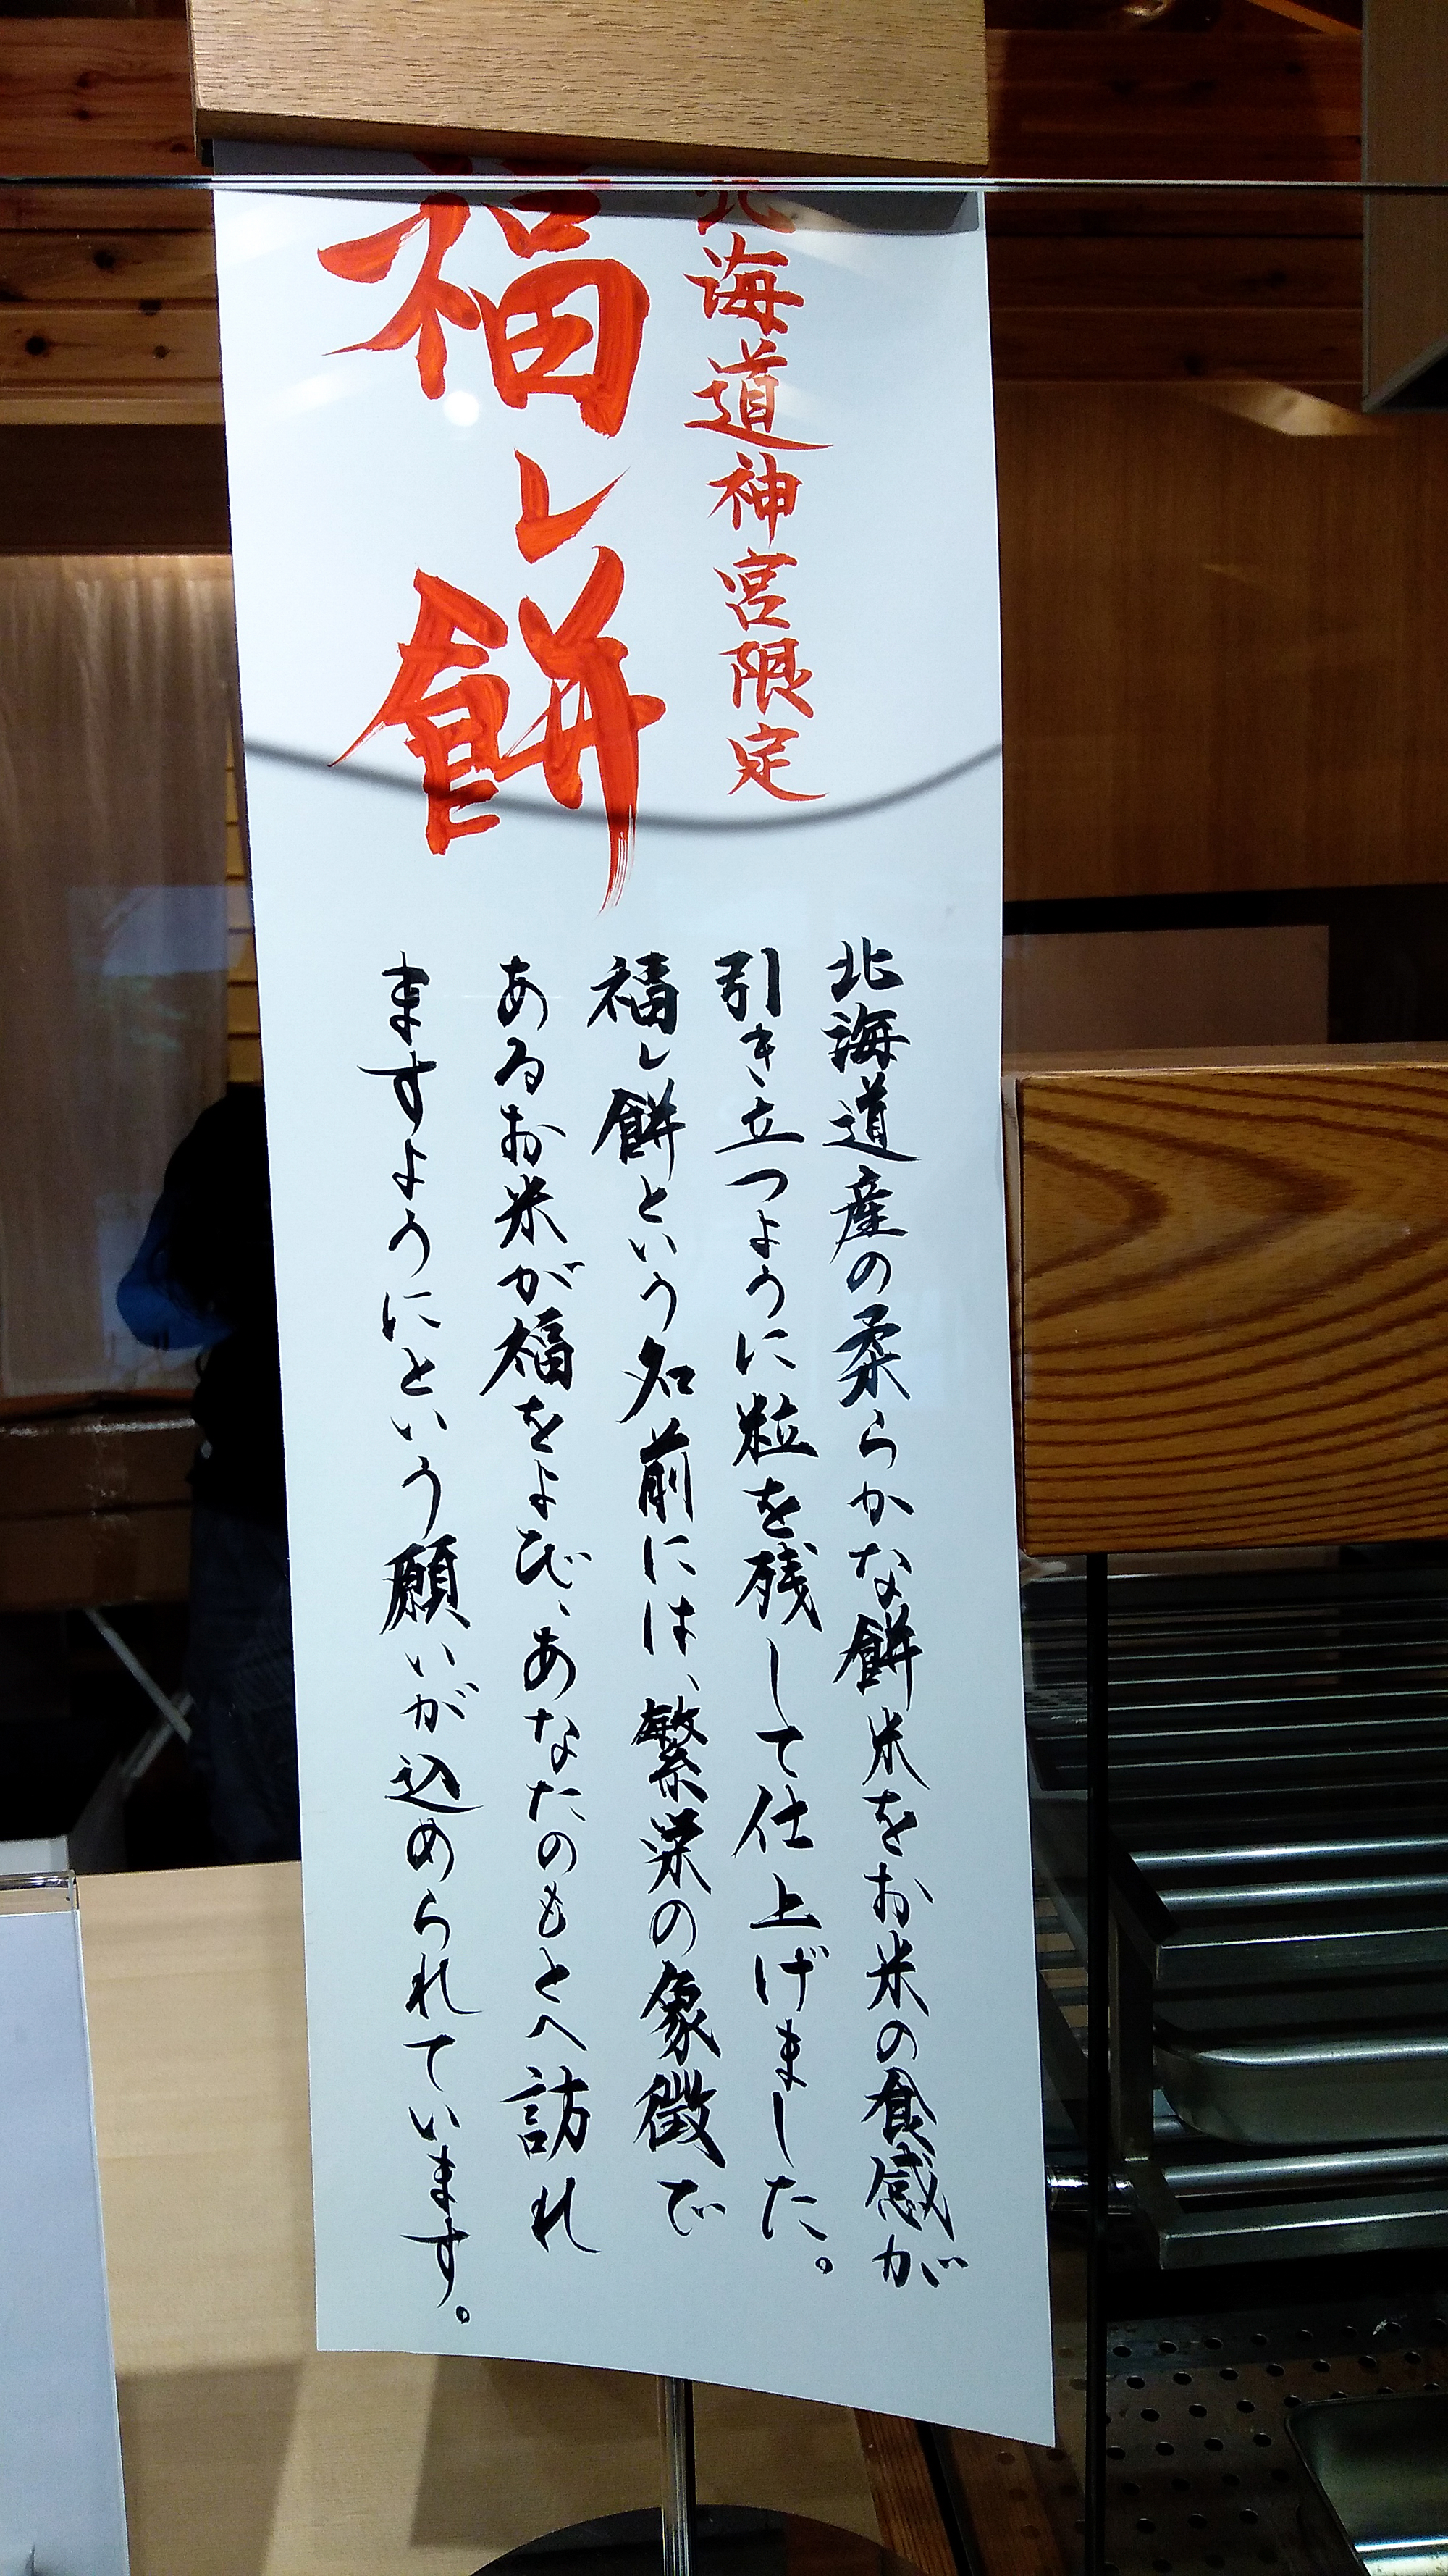 北海道神宮限定
福し餅
北海道産の柔らかな餅米をお米の食感が
引き立つように粒を残して仕上げました。
福し餅という名前には、繁栄の象徴で
あるお米が福をよび、あなたのもとへ訪れ
ますようにという願いが込められています。